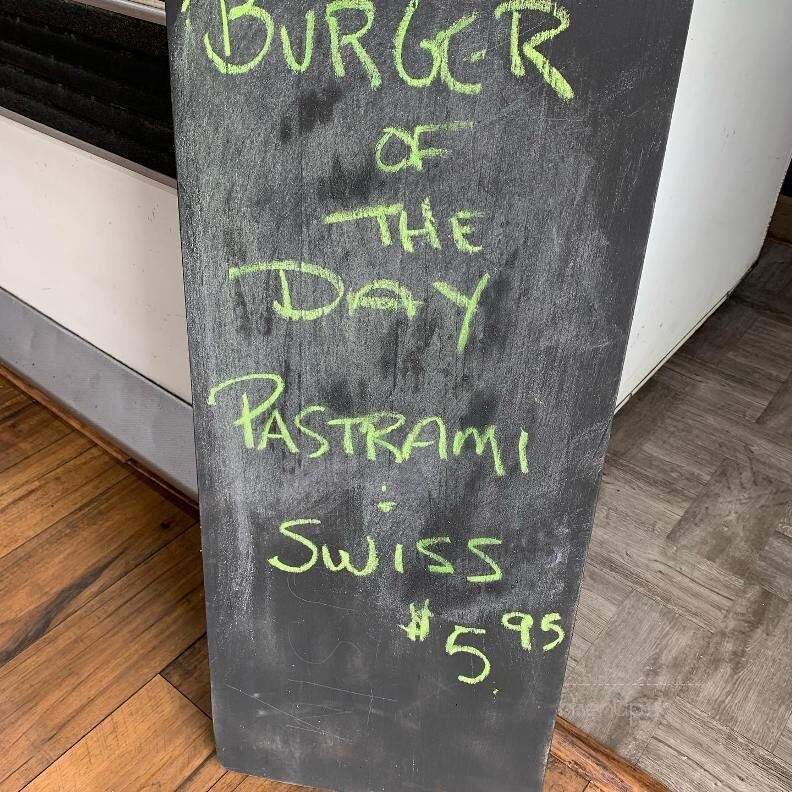 BURGER
OF
THE
DAY
PASTRAMI
÷
SWISS
$5.95